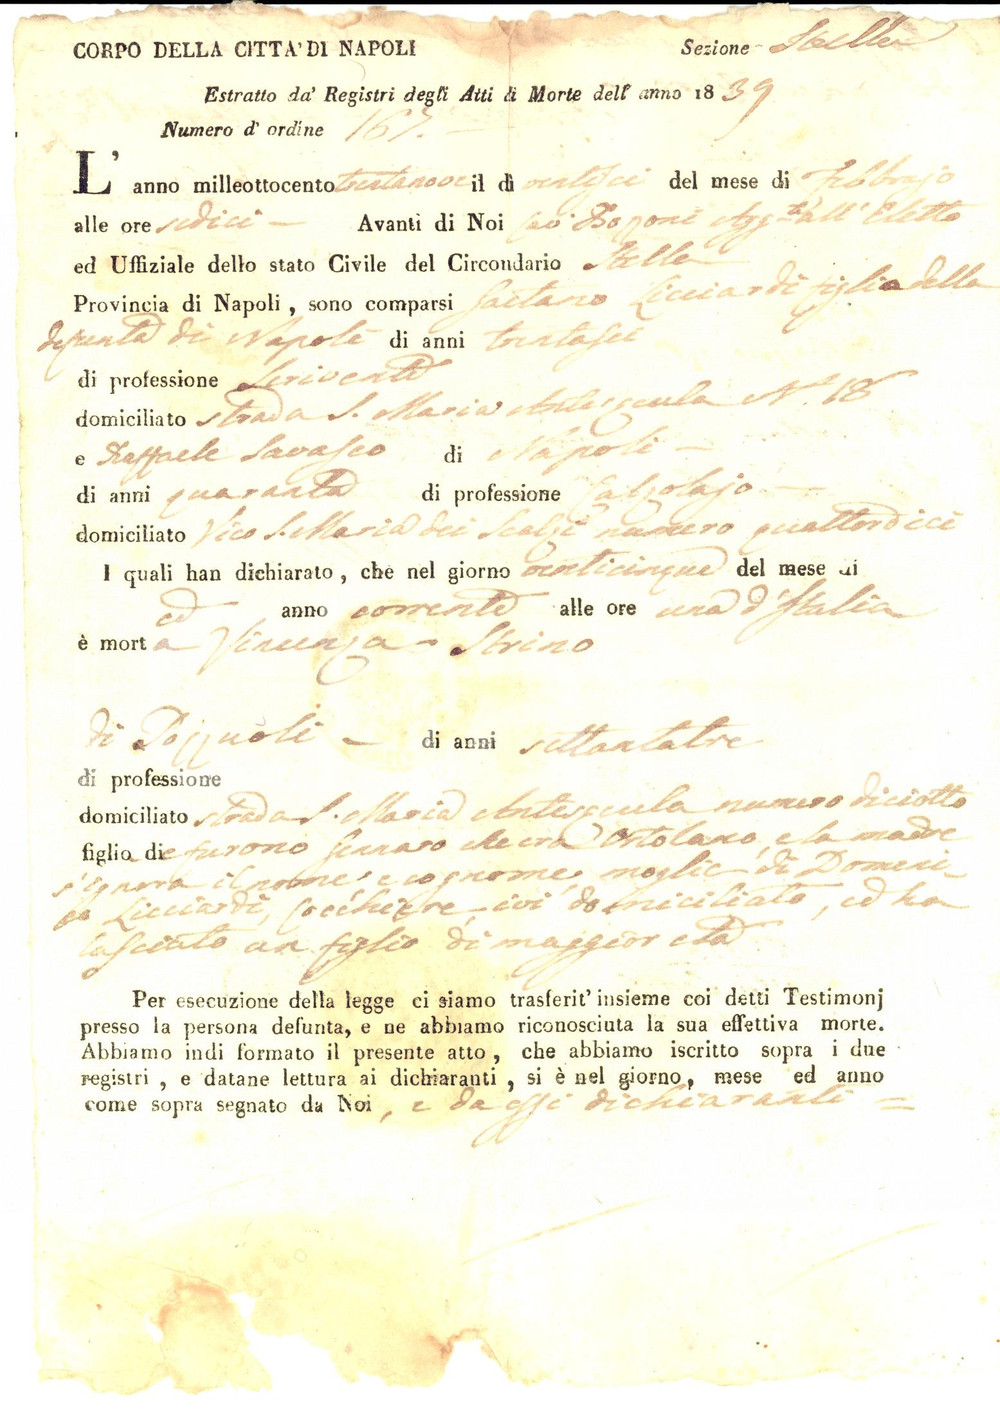 CORPO DELLA CITTA' DI NAPOLI Sezione Stella
Estratto da' Registri degli Atti di Morte dell' anno 1839
Numero d' ordine 167.
L' anno milleottocento trentanove il dì ventisei del mese di Febbrajo
alle ore sedici Avanti di Noi Agg.to all' Eletto
ed Uffiziale dello stato Civile del Circondario Stella
Provincia di Napoli, sono comparsi Gaetano Licciardi figlio della
defunta di Napoli di anni trentasei
di professione Scrivente
domiciliato strada S. Maria Antesecula N.° 18
e Raffaele Savasco di Napoli
di anni quaranta di professione Calzolajo
domiciliato Vico S. Maria dei Scalzi numero quattordici
I quali han dichiarato, che nel giorno venticinque del mese di
ed anno corrente alle ore una d'Italia
è morta Vincenza Strino
di Pozzuoli di anni settantatre
di professione
domiciliato strada S. Maria Antesecula numero diciotto
figlia di furono Gennaro che era Ortolano, e la madre
s'ignora il nome, e cognome, moglie di Domeni-
co Licciardi, Cocchiere, ivi domiciliato, ed ha
lasciato un figlio di maggior età
Per esecuzione della legge ci siamo trasferit' insieme coi detti Testimonj
presso la persona defunta, e ne abbiamo riconosciuta la sua effettiva morte.
Abbiamo indi formato il presente atto, che abbiamo iscritto sopra i due
registri, e datane lettura ai dichiaranti, si è nel giorno, mese ed anno
come sopra segnato da Noi, e da essi dichiaranti =